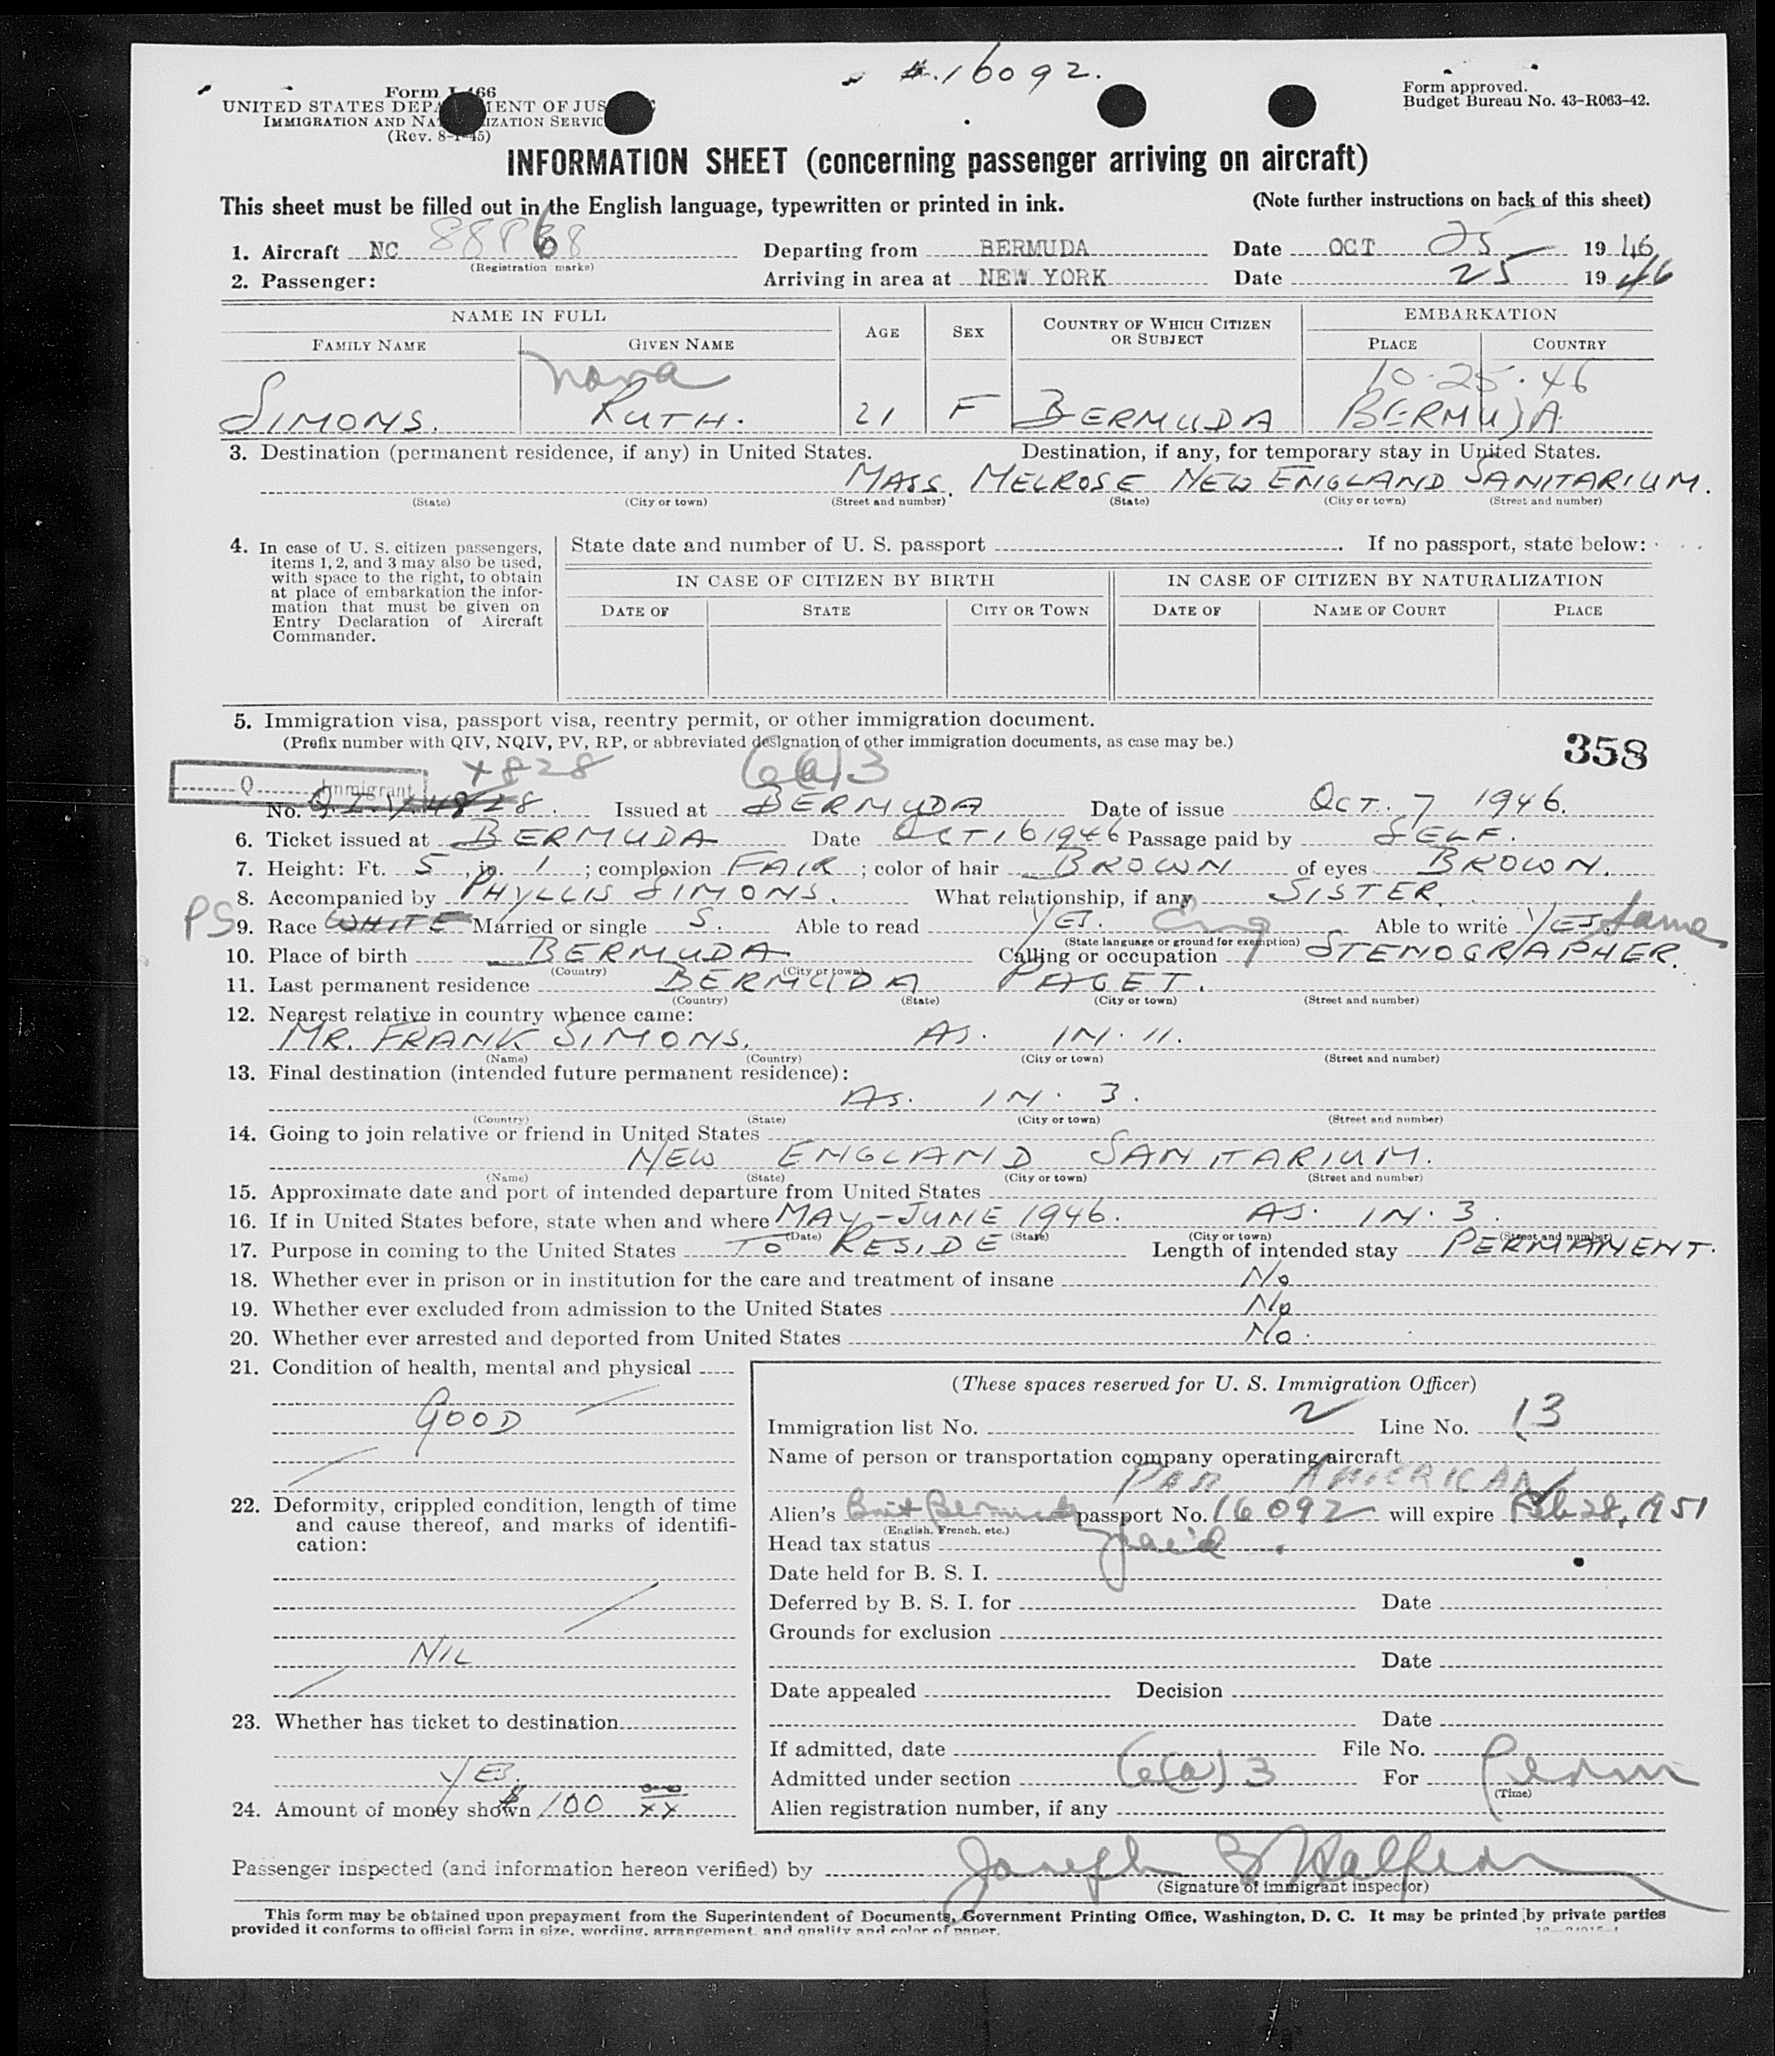 #.16092.
Form I-466
UNITED STATES DEPARTMENT OF JUSTICE
IMMIGRATION AND NATURALIZATION SERVICE
(Rev. 8-1-45)
Form approved.
Budget Bureau No. 43-R063-42.
INFORMATION SHEET (concerning passenger arriving on aircraft)
This sheet must be filled out in the English language, typewritten or printed in ink. (Note further instructions on back of this sheet)
1. Aircraft NC Departing from BERMUDA Date OCT 25 1946
(Registration marks)
2. Passenger: Arriving in area at NEW YORK Date 25 1946
NAME IN FULL AGE SEX COUNTRY OF WHICH CITIZEN OR SUBJECT EMBARKATION
FAMILY NAME GIVEN NAME PLACE COUNTRY
Nora 10-25-46
SIMONS. RUTH. 21 F BERMUDA BERMUDA
3. Destination (permanent residence, if any) in United States. Destination, if any, for temporary stay in United States.
MASS. MELROSE NEW ENGLAND SANITARIUM.
(State) (City or town) (Street and number) (State) (City or town) (Street and number)
4. In case of U. S. citizen passengers, items 1, 2, and 3 may also be used, with space to the right, to obtain at place of embarkation the information that must be given on Entry Declaration of Aircraft Commander.
State date and number of U. S. passport . If no passport, state below:
IN CASE OF CITIZEN BY BIRTH IN CASE OF CITIZEN BY NATURALIZATION
DATE OF STATE CITY OR TOWN DATE OF NAME OF COURT PLACE
5. Immigration visa, passport visa, reentry permit, or other immigration document.
(Prefix number with QIV, NQIV, PV, RP, or abbreviated designation of other immigration documents, as case may be.)
358
828 6(a)3
Q Immigrant
No. Issued at BERMUDA Date of issue OCT. 7 1946.
6. Ticket issued at BERMUDA Date OCT 16 1946 Passage paid by SELF.
7. Height: Ft. 5, in. 1; complexion FAIR; color of hair BROWN of eyes BROWN.
8. Accompanied by PHYLLIS SIMONS. What relationship, if any SISTER.
PS 9. Race WHITE Married or single S. Able to read YES. Eng Able to write YES. Same
(State language or ground for exemption)
10. Place of birth BERMUDA Calling or occupation STENOGRAPHER.
(Country) (City or town)
11. Last permanent residence BERMUDA PAGET.
(Country) (State) (City or town) (Street and number)
12. Nearest relative in country whence came:
MR. FRANK SIMONS. AS. IN. 11.
(Name) (Country) (City or town) (Street and number)
13. Final destination (intended future permanent residence):
AS. IN. 3.
(Country) (State) (City or town) (Street and number)
14. Going to join relative or friend in United States
NEW ENGLAND SANITARIUM.
(Name) (State) (City or town) (Street and number)
15. Approximate date and port of intended departure from United States
16. If in United States before, state when and where MAY-JUNE 1946. AS. IN. 3.
(Date) (State) (City or town) (Street and number)
17. Purpose in coming to the United States TO RESIDE Length of intended stay PERMANENT.
18. Whether ever in prison or in institution for the care and treatment of insane No
19. Whether ever excluded from admission to the United States No
20. Whether ever arrested and deported from United States No.
21. Condition of health, mental and physical
GOOD
22. Deformity, crippled condition, length of time and cause thereof, and marks of identification:
NIL
23. Whether has ticket to destination
YES.
24. Amount of money shown $100 00/XX
(These spaces reserved for U. S. Immigration Officer)
Immigration list No. 2 Line No. 13
Name of person or transportation company operating aircraft
PAN AMERICAN
Alien's Brit Bermuda passport No. 16092 will expire Feb 28, 1951
(English, French, etc.)
Head tax status paid.
Date held for B. S. I.
Deferred by B. S. I. for Date
Grounds for exclusion
Date
Date appealed Decision
Date
If admitted, date File No.
Admitted under section 6(a)3 For Perm
(Time)
Alien registration number, if any
Passenger inspected (and information hereon verified) by Joseph B Halpern
(Signature of immigrant inspector)
This form may be obtained upon prepayment from the Superintendent of Documents, Government Printing Office, Washington, D. C. It may be printed by private parties
provided it conforms to official form in size, wording, arrangement, and quality and color of paper.